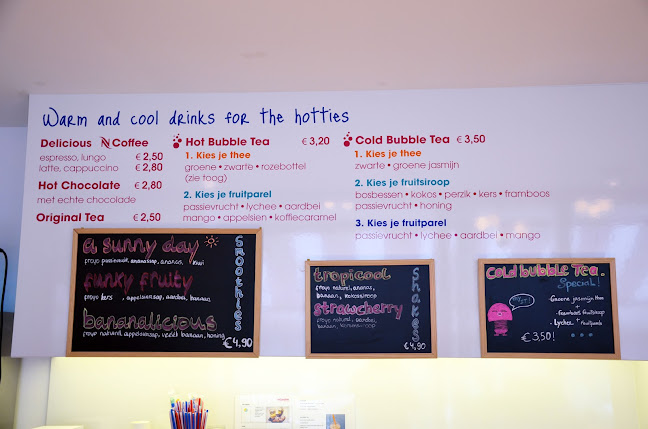 Warm and cool drinks for the hotties
Delicious N Coffee
espresso, lungo € 2,50
latte, cappuccino € 2,80
Hot Chocolate € 2,80
met echte chocolade
Original Tea € 2,50
Hot Bubble Tea € 3,20
1. Kies je thee
groene • zwarte • rozebottel
(zie toog)
2. Kies je fruitparel
passievrucht • lychee • aardbei
mango • appelsien • koffiecaramel
Cold Bubble Tea € 3,50
1. Kies je thee
zwarte • groene jasmijn
2. Kies je fruitsiroop
bosbessen • kokos • perzik • kers • framboos
passievrucht • honing
3. Kies je fruitparel
passievrucht • lychee • aardbei • mango
a sunny day
froyo passievrucht, ananassap, ananas, kiwi
funky fruity
froyo kers, appelsiensap, aardbei, banaan
bananalicious
froyo naturel, appelsiensap, veel banaan, honing
Smoothies
€ 4,90
tropicool
froyo naturel, ananas,
banaan, kokossiroop
strawcherry
froyo naturel, aardbei,
banaan, kersensiroop
Shakes
€ 4,90
Cold bubble Tea
Special!
Groene jasmijn thee
+
Framboos fruitsiroop
+
Lychee fruitparels
€ 3,50!